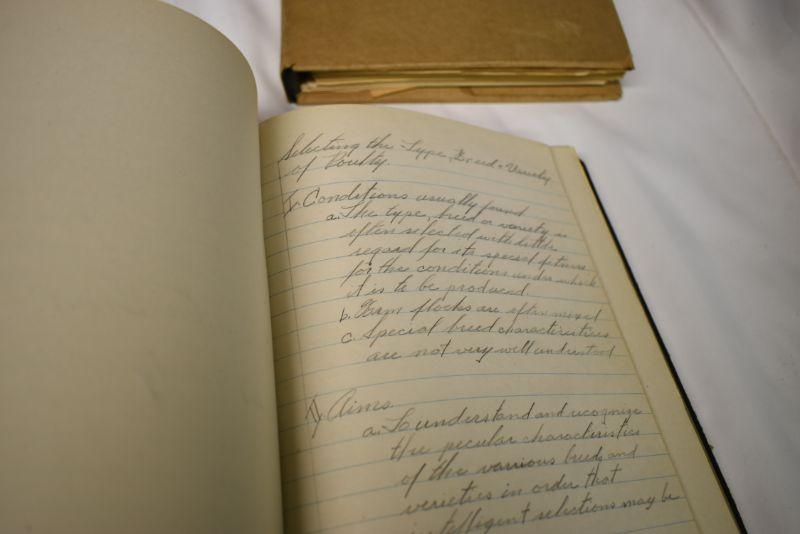 Selecting the Type, Breed + Variety
of Poultry.
I Conditions usually found
a. The type, breed or variety is
often selected with little
regard for its special fitness
for the conditions under which
it is to be produced.
b. Farm flocks are often mixed
c. Special breed characteristics
are not very well understood
Aims.
a. To understand and recognize
the peculiar characteristics
of the various breeds and
varieties in order that
intelligent selections may be